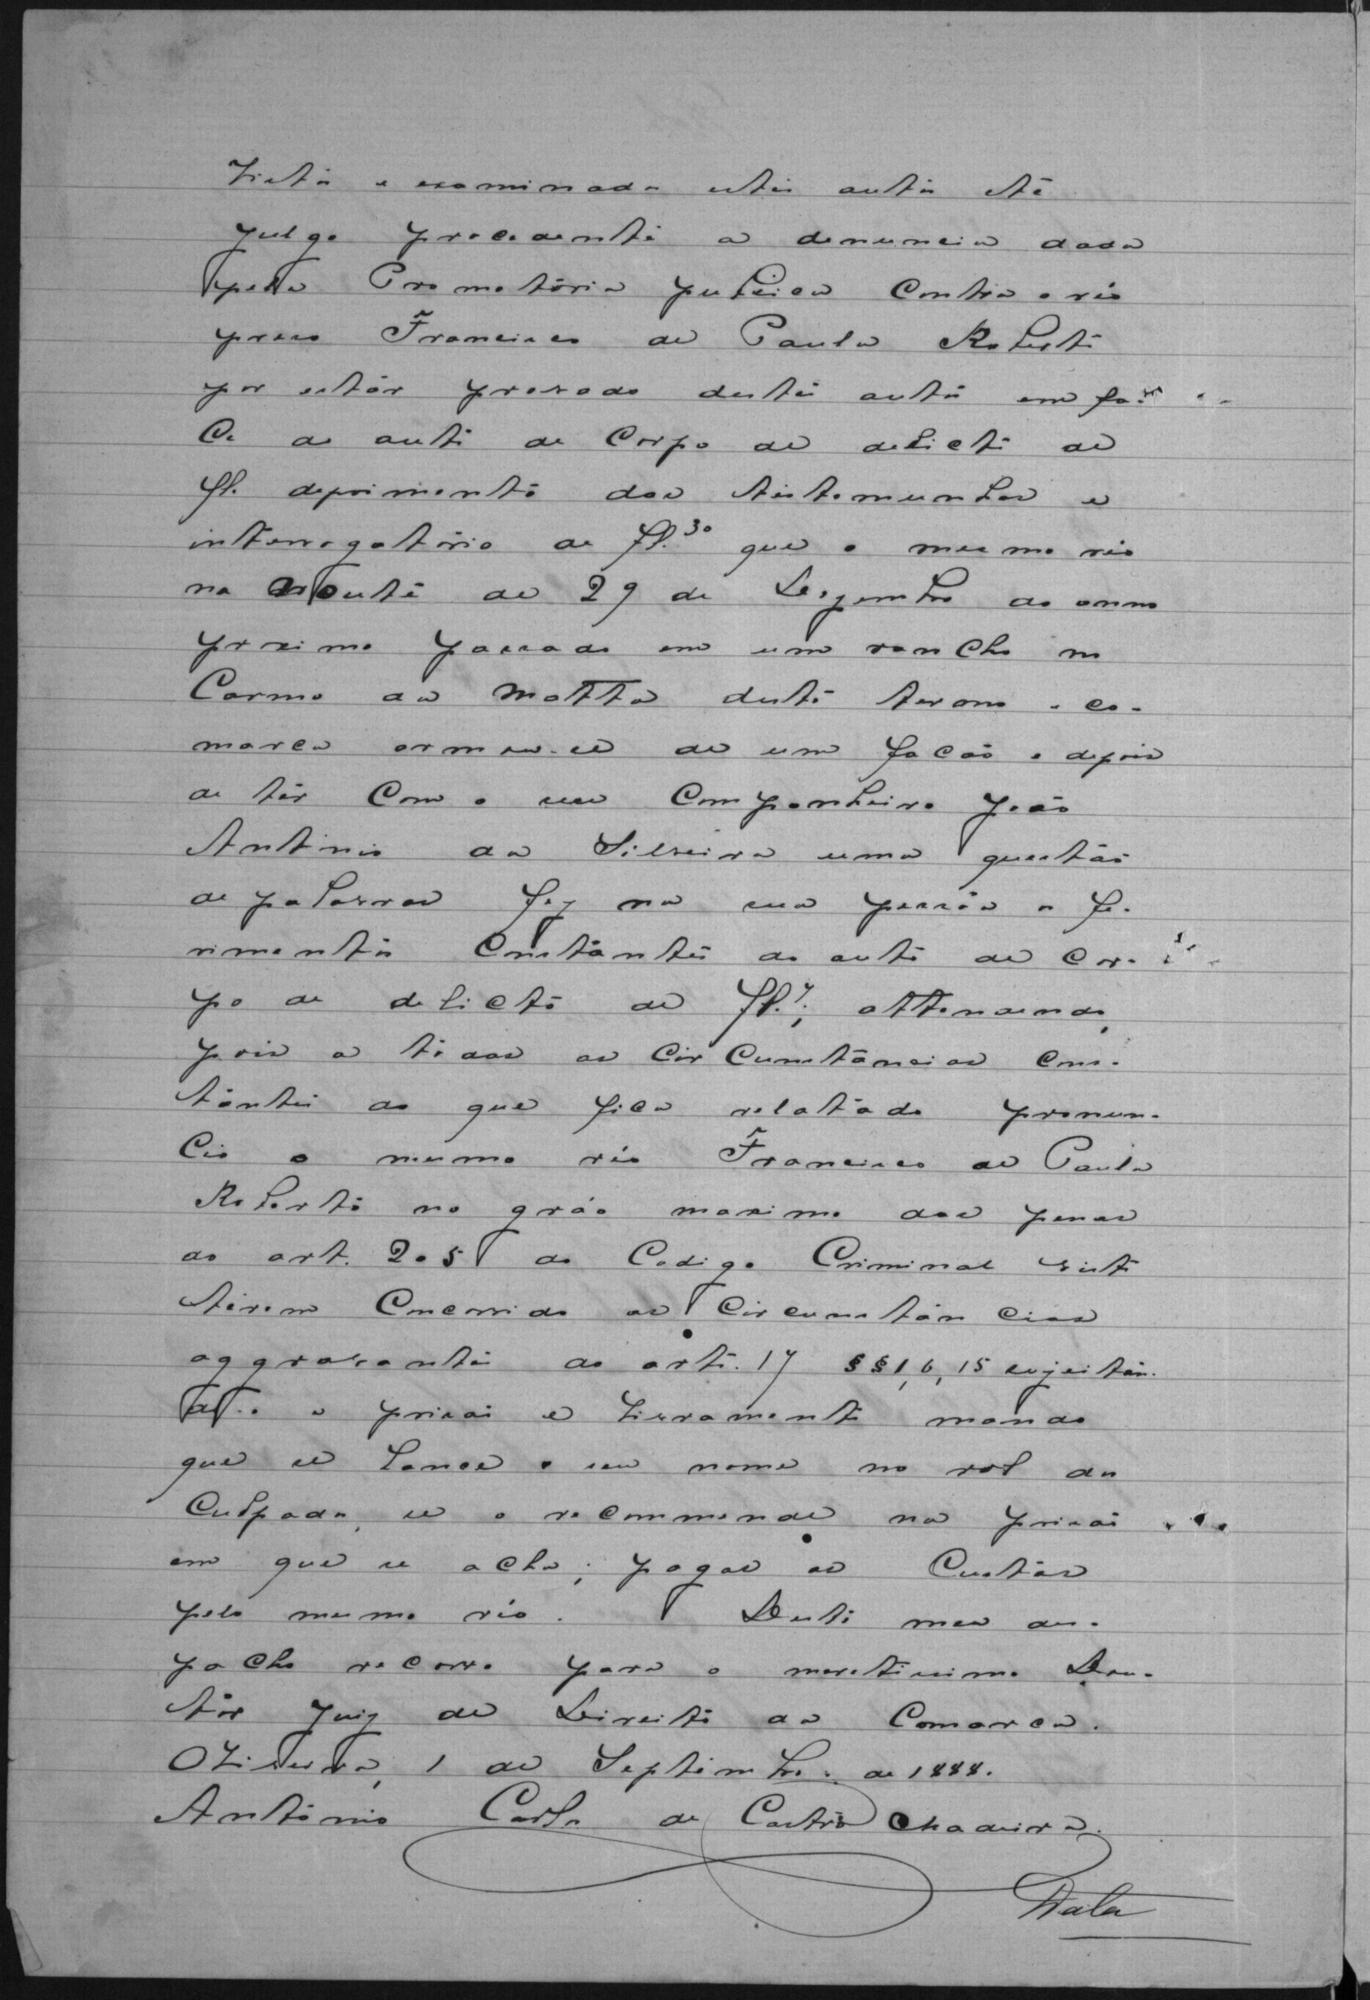 Vistos e examinados estes autos etc
julgo procedente a denuncia dada
pela Promotoria publica contra o réo
preso Francisco de Paula Roberto
por estár provado destes autos em fa-
ce do auto de corpo de delicto de
fl. depoimento das testemunhas e
interrogatorio de fl. 30 que o mesmo réo
na noute de 29 de Dezembro do anno
proximo passado em um rancho no
Carmo da Matta deste termo e co-
marca armou-se de um facão e depois
de têr com o seu companheiro João
Antonio da Silveira uma questão
de palavras fez na sua pessôa os fe-
rimentos constantes do auto de cor-
po de delicto de fl. 7; attendendo,
pois a todas as circumstancias cons-
tantes do que fica relatado pronun-
cio o mesmo réo Francisco de Paula
Roberto no gráo maximo das penas
do art. 205 do Codigo Criminal visto
terem concorrido as circumstancias
aggravantes do arti. 17 §§ 1, 6, 15 sujeitan-
do-o a prisão e livramento mando
que se lance o seu nome no rol dos
culpados, se o recommende na prisão
em que se acha; pagas as custas
pelo mesmo réo. Deste meu des-
pacho recorro para o meretissimo Dou-
tôr Juiz de Direito da Comarca.
Oliveira, 1 de Septembro de 1888.
Antonio Carlos de Castro Madeira.
Data